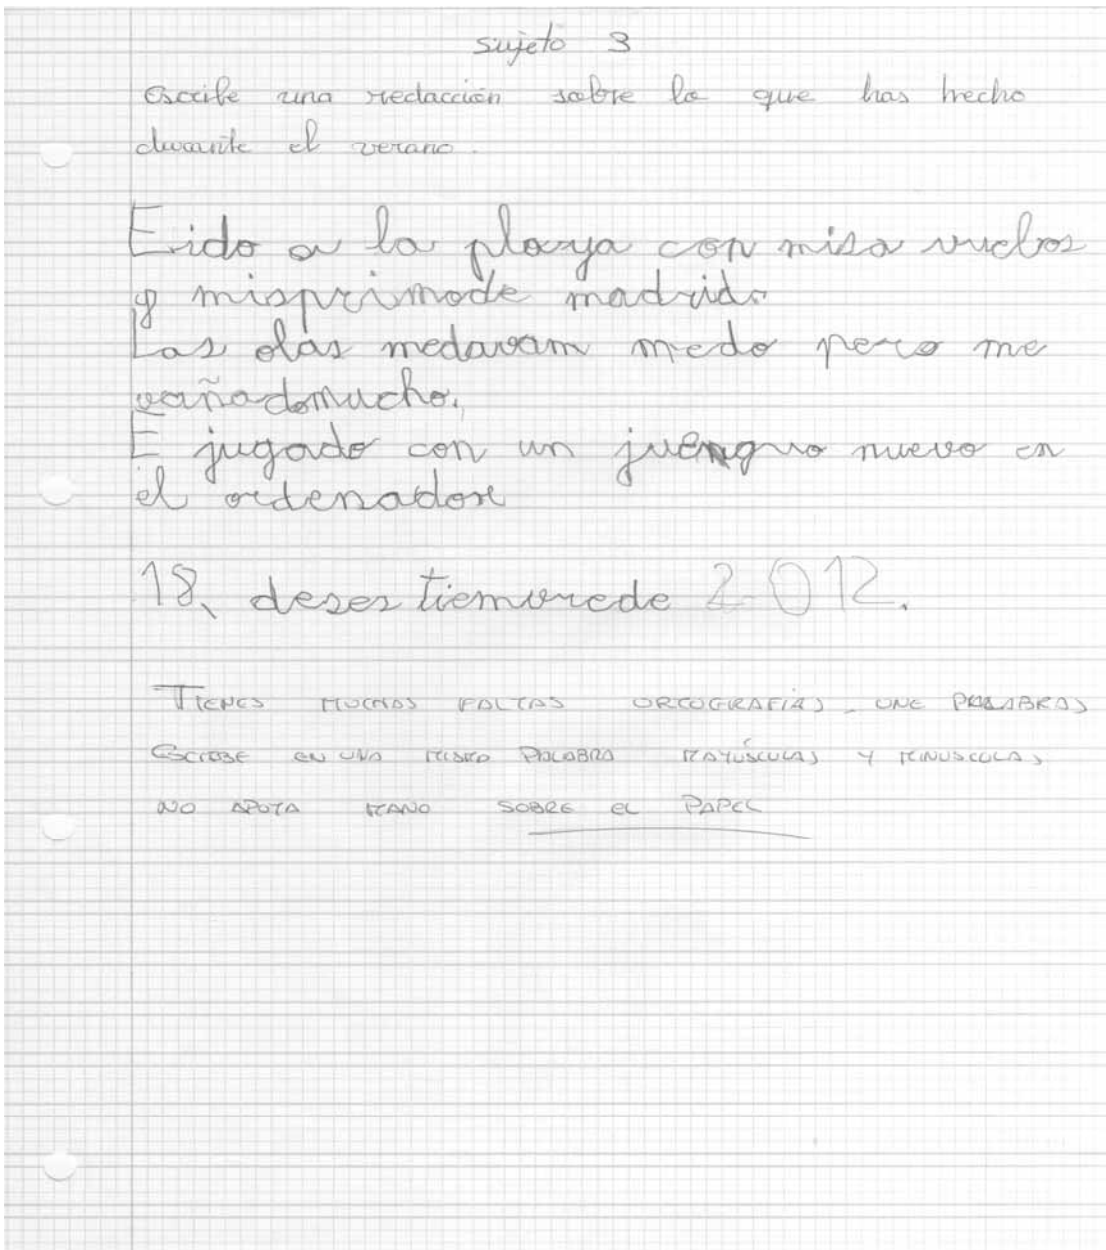 sujeto 3
Escribe una redacción sobre lo que has hecho
durante el verano.
E ido a la playa con misa vuelos
y misprimode madrid.
Las olas medavam medo pero me
vañadomucho.
E jugado con un juenguo nuevo en
el ordenador
18, deses tiemvrede 2012.
TIENES MUCHAS FALTAS ORTOGRAFÍAS. UNE PALABRAS
ESCRIBE EN UNA MISMO PALABRA MAYÚSCULAS Y MINUSCULAS
NO APOYA MANO SOBRE EL PAPEL